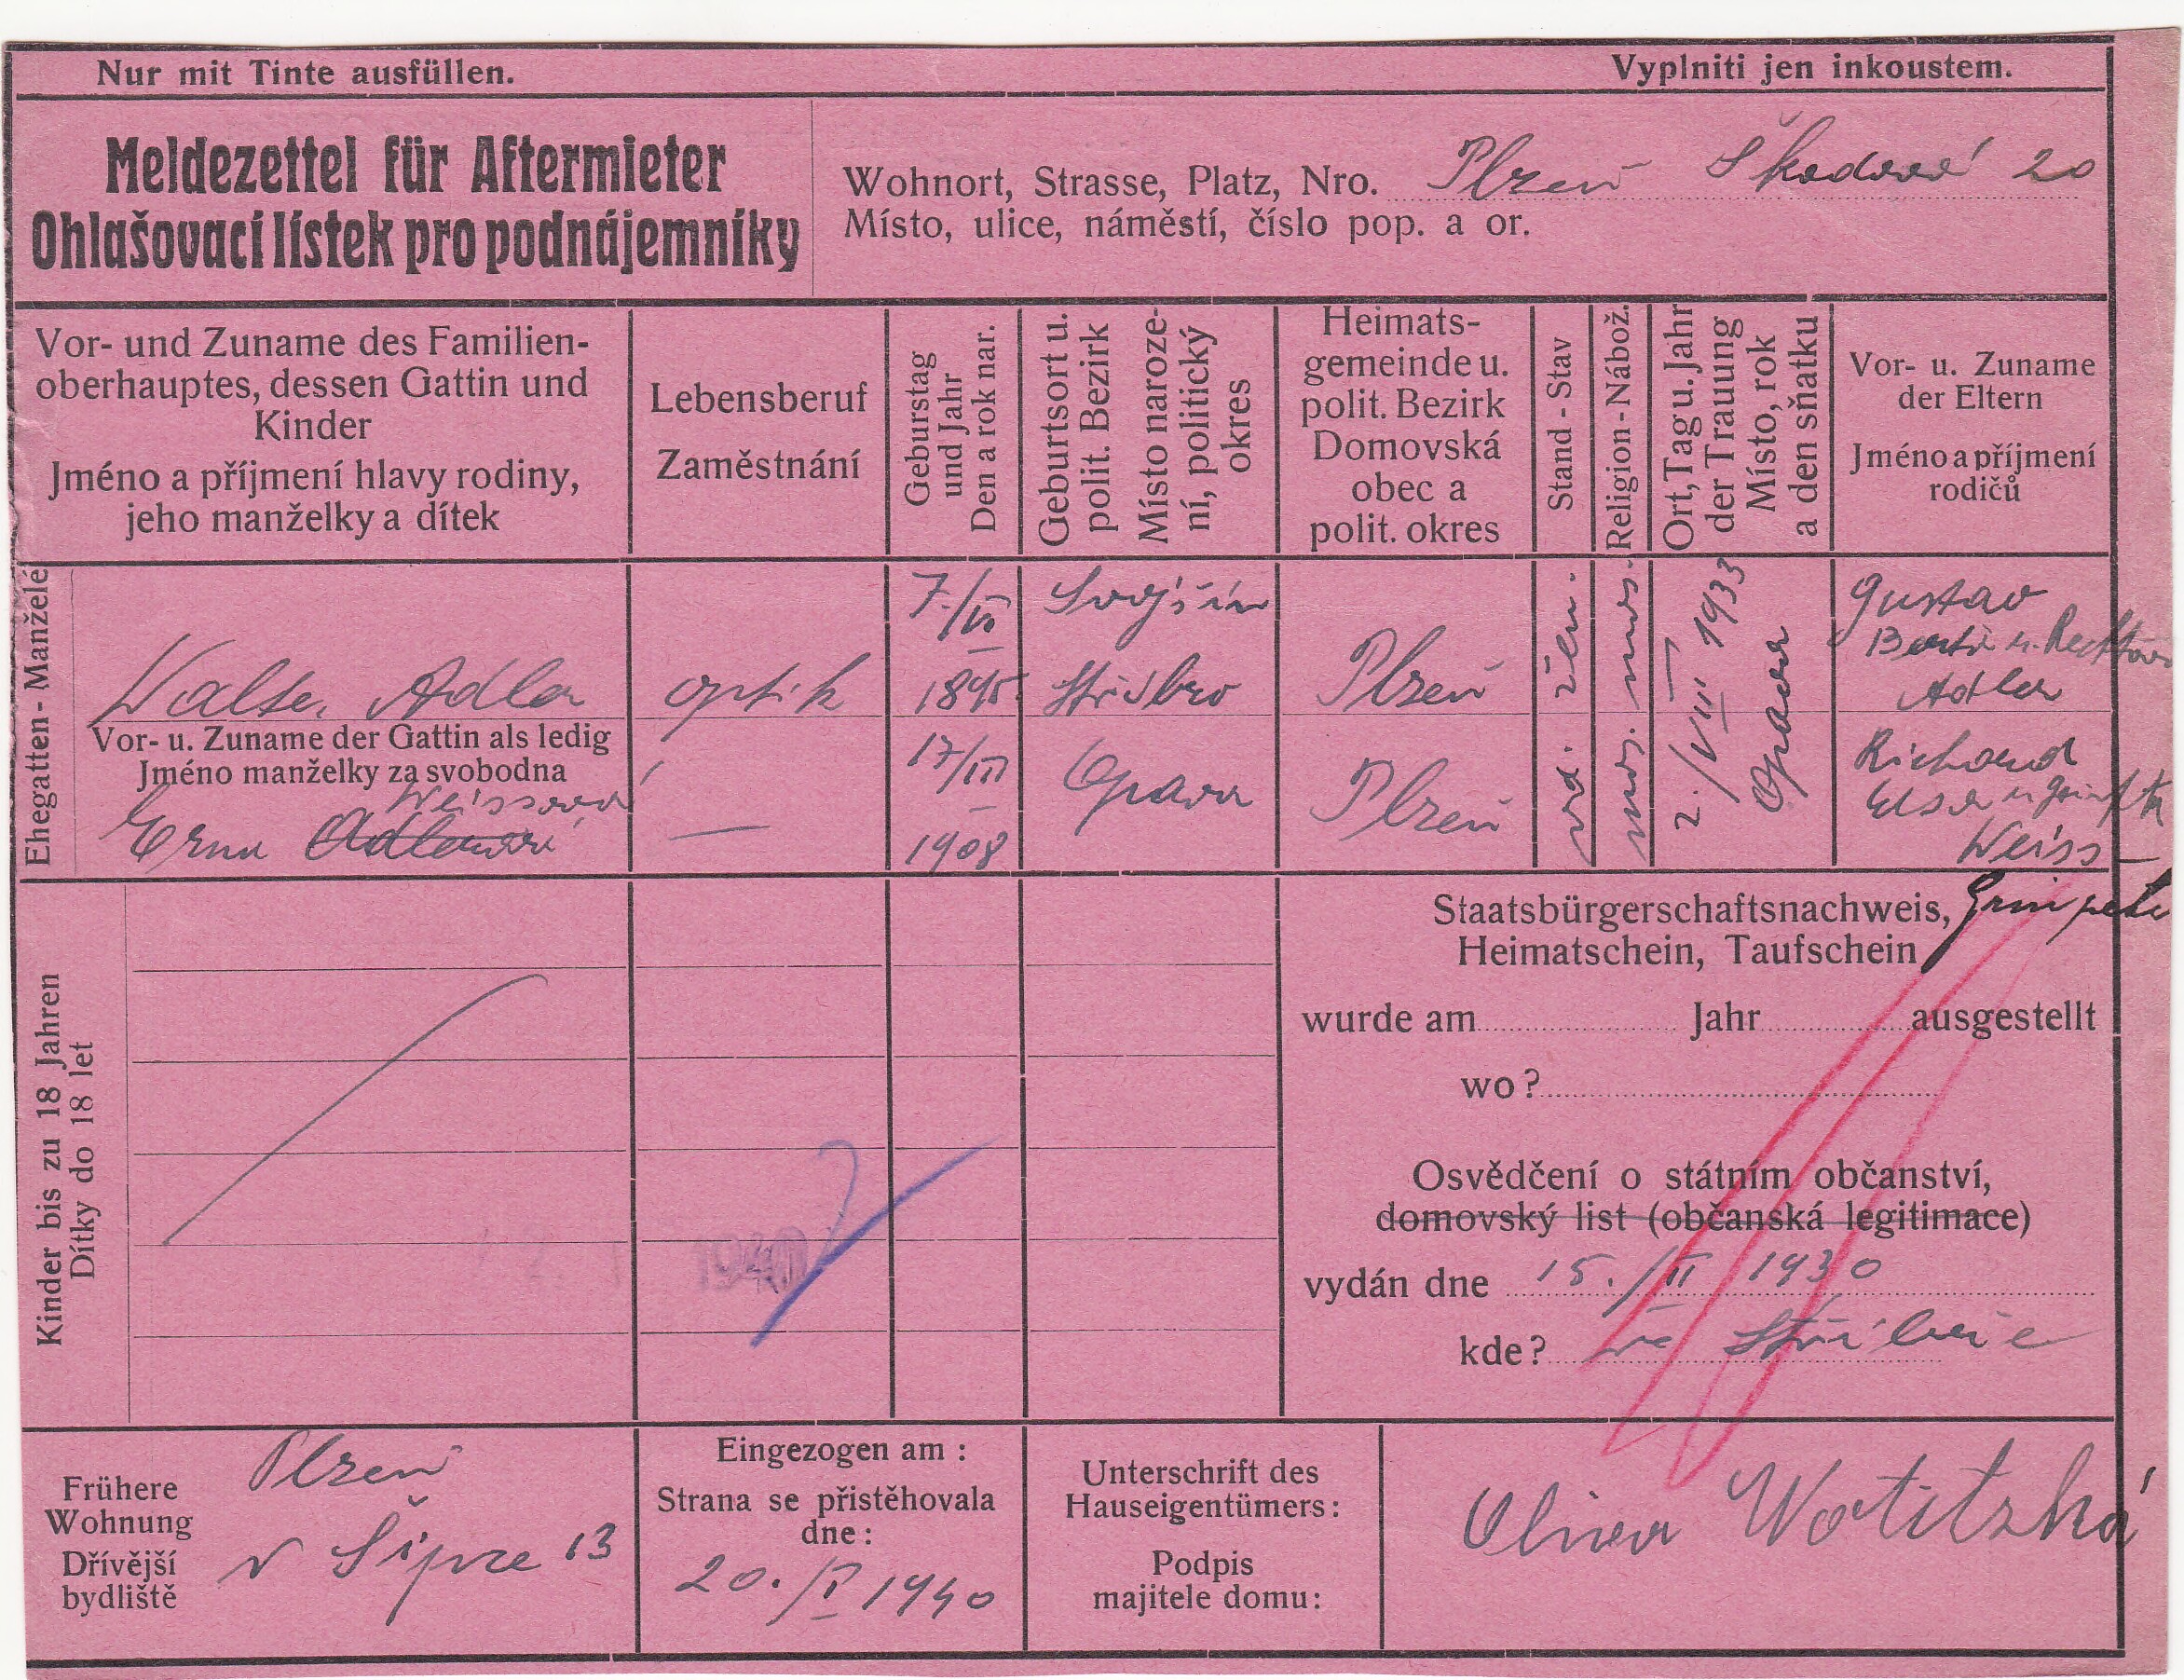 Nur mit Tinte ausfüllen.
Vyplniti jen inkoustem.
Meldezettel für Aftermieter
Ohlašovací lístek pro podnájemníky
Wohnort, Strasse, Platz, Nro. Plzeň Škodova 20
Místo, ulice, náměstí, číslo pop. a or.
Vor- und Zuname des Familien-
oberhauptes, dessen Gattin und
Kinder
Jméno a příjmení hlavy rodiny,
jeho manželky a dítek
Lebensberuf
Zaměstnání
Geburstag
und Jahr
Den a rok nar.
Geburtsort u.
polit. Bezirk
Místo naroze-
ní, politický
okres
Heimats-
gemeinde u.
polit. Bezirk
Domovská
obec a
polit. okres
Stand - Stav
Religion - Nábož.
Ort, Tag u. Jahr
der Trauung
Místo, rok
a den sňatku
Vor- u. Zuname
der Eltern
Jméno a příjmení
rodičů
Ehegatten - Manželé
Walter Adler
optik
7./VI
1895
Svojšín
Stříbro
Plzeň
žen.
mos.
Gustav
Adler
Vor- u. Zuname der Gattin als ledig
Jméno manželky za svobodna
Weissova
Erna Adlerova
—
17/III
1908
Opava
Plzeň
vd.
mos.
2./VII 1933
Opava
Richard
Elsa
Weiss
Kinder bis zu 18 Jahren
Dítky do 18 let
Staatsbürgerschaftsnachweis,
Heimatschein, Taufschein
wurde am Jahr ausgestellt
wo?
Osvědčení o státním občanství,
domovský list (občanská legitimace)
vydán dne 15./II 1930
kde? ve Stříbře
Frühere
Wohnung
Dřívější
bydliště
Plzeň
v Šipce 13
Eingezogen am :
Strana se přistěhovala
dne :
20./I 1940
Unterschrift des
Hauseigentümers:
Podpis
majitele domu:
Olina Wotitzká